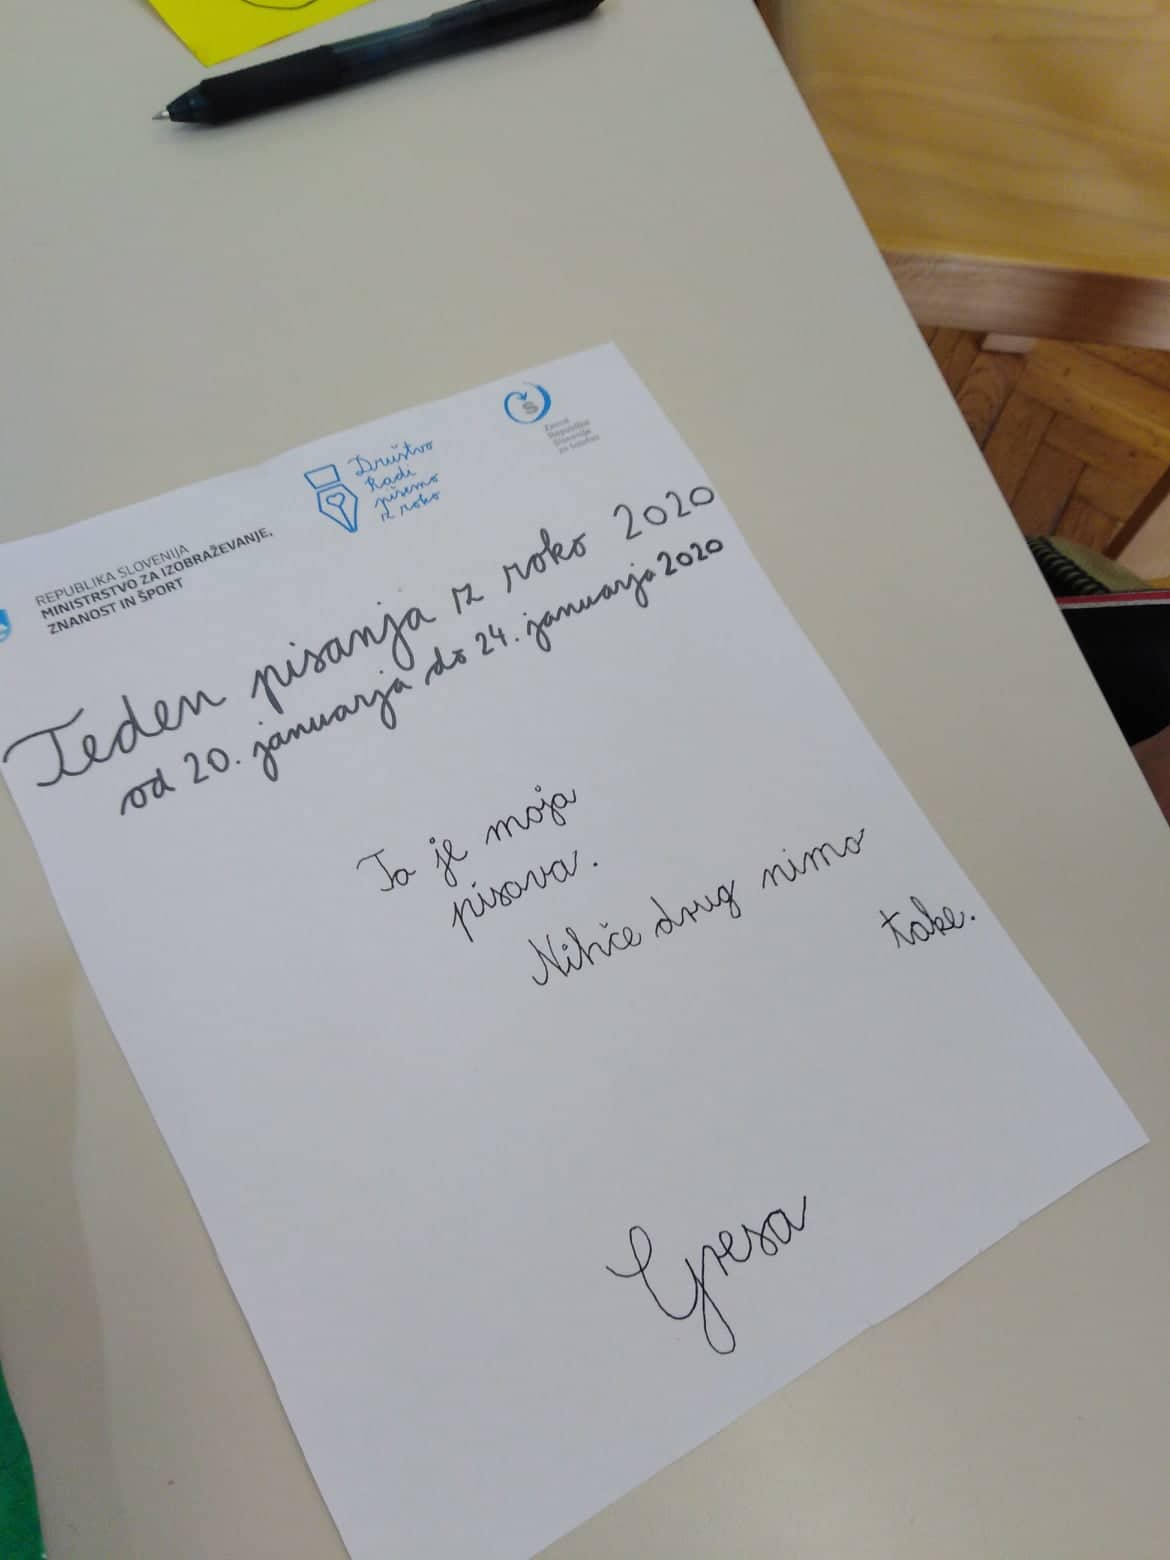 REPUBLIKA SLOVENIJA
MINISTRSTVO ZA IZOBRAŽEVANJE,
ZNANOST IN ŠPORT
Društvo
Radi
pišemo
z roko
Š
Zavod
Republike
Slovenije
za šolstvo
Teden pisanja z roko 2020
od 20. januarja do 24. januarja 2020
Ta je moja
pisava.
Nihče drug nima
take.
Gresa